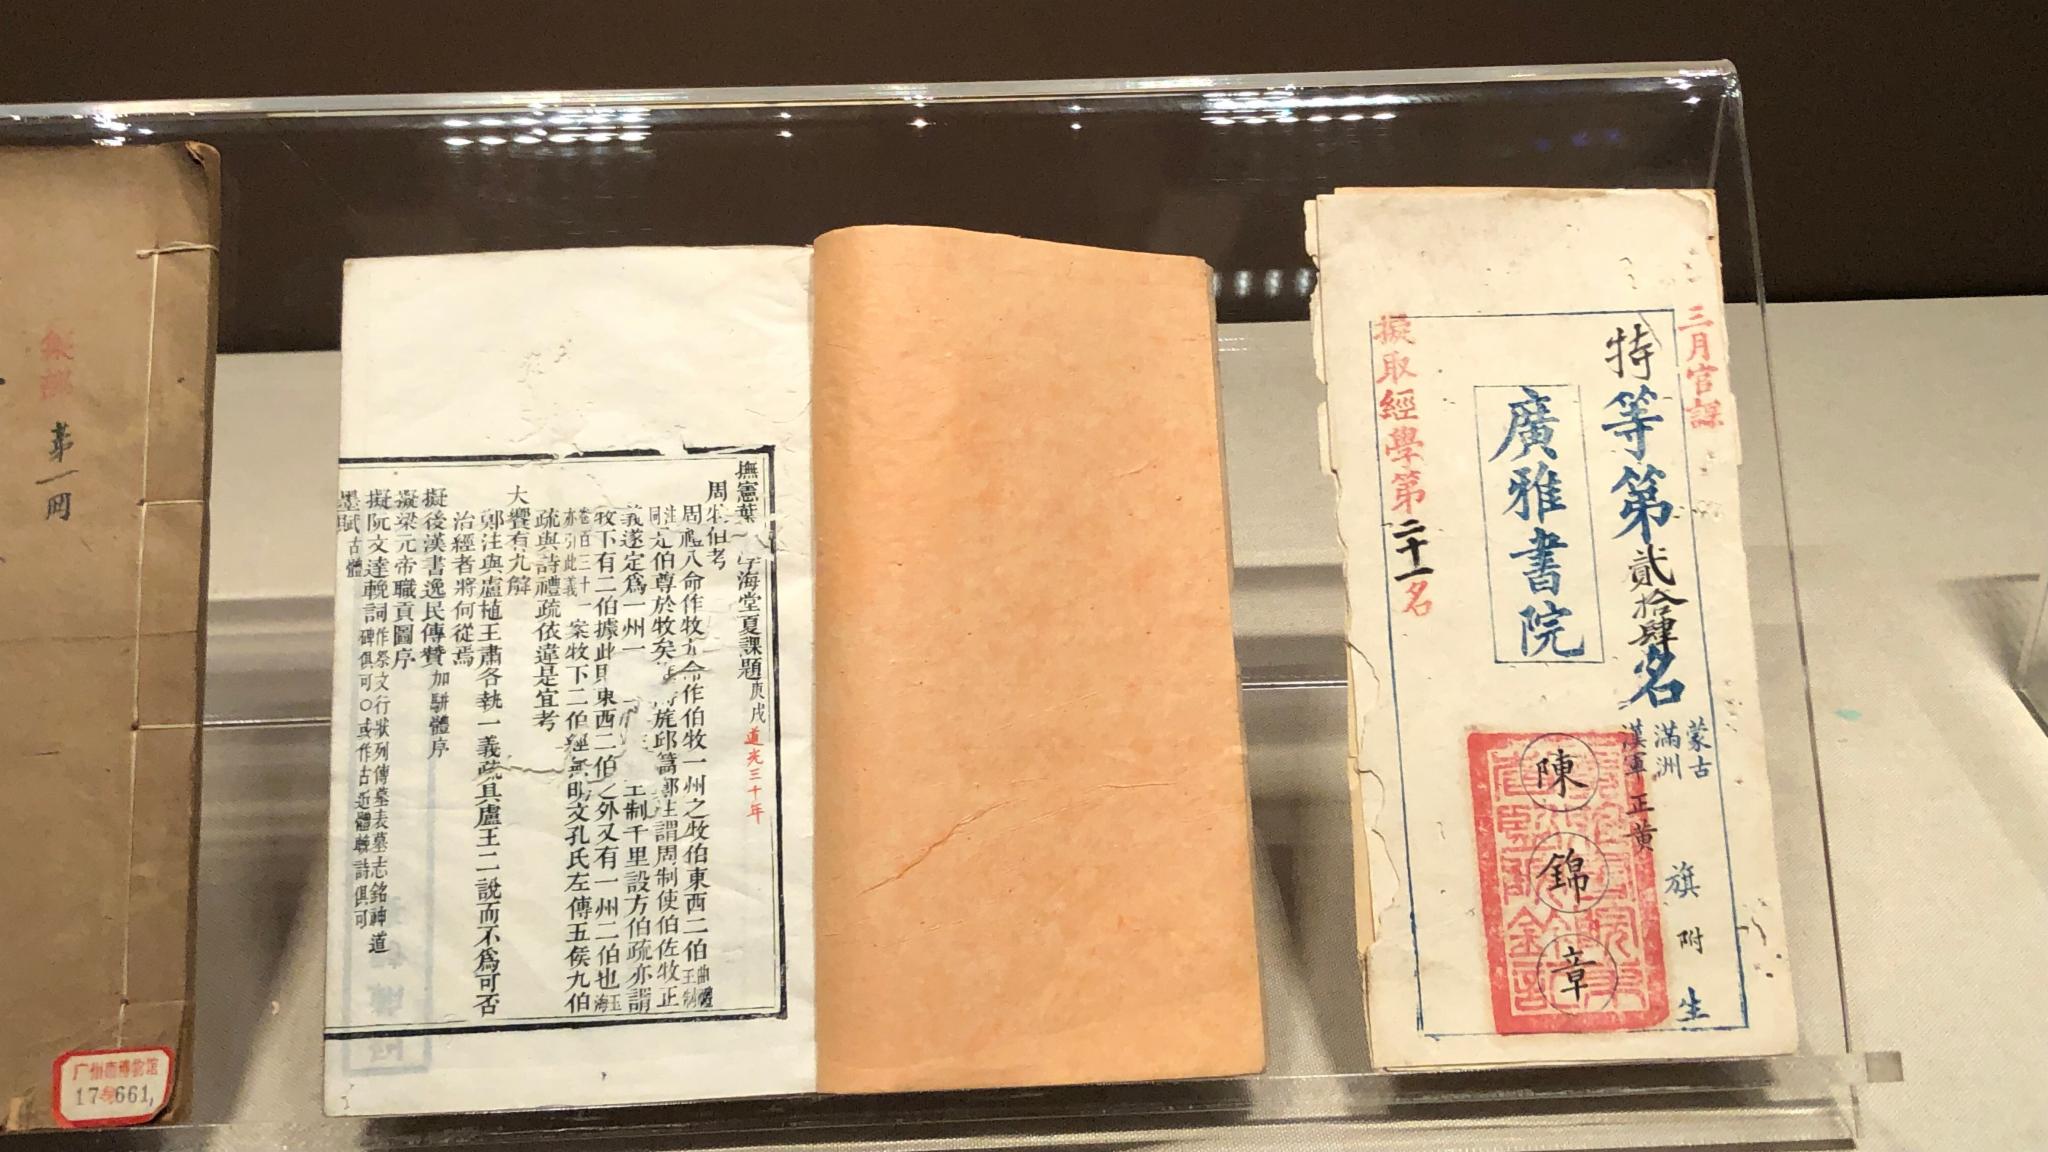 三月官課
特等第貳拾肆名
蒙古
滿洲
漢軍
正黃
旗附生
廣雅書院
陳錦章
擬取經學第二十一名
撫憲葉
學海堂夏課題庚戌道光三十年
周牧伯考
周禮八命作牧九命作伯牧一州之牧伯東西二伯曲禮王制
注同是伯尊於牧矣
旄邱篇鄭注謂周制使伯佐牧正
義遂定爲一州一
王制千里設方伯疏亦謂
牧下有二伯據此則東西二伯之外又有一州二伯也玉海
卷百三十一
亦引此義
案牧下二伯經無明文孔氏左傳五侯九伯
疏與詩禮疏依違是宜考
大饗有九解
鄭注與盧植王肅各執一義疏具盧王二說而不爲可否
治經者將何從焉
擬後漢書逸民傳贊加駢體序
擬梁元帝職貢圖序
擬阮文達輓詞作祭文行狀列傳墓表墓志銘神道
碑俱可〇或作古近體輓詩俱可
墨賦古體
集部
第一
广州市博物馆
17 661